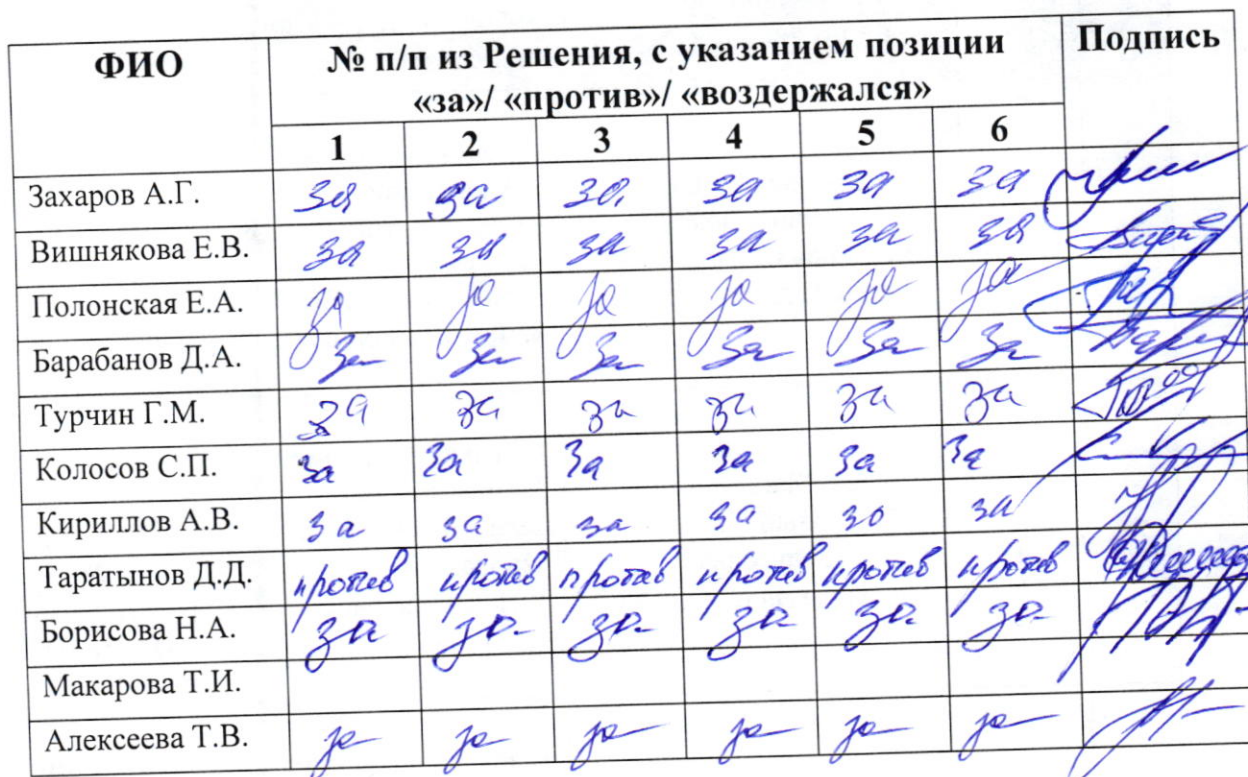 ФИО № п/п из Решения, с указанием позиции Подпись
«за»/ «против»/ «воздержался»
1 2 3 4 5 6
Захаров А.Г. за за за за за за
Вишнякова Е.В. за за за за за за
Полонская Е.А. за за за за за за
Барабанов Д.А. За За За За За За
Турчин Г.М. за за за за за за
Колосов С.П. За За За За За За
Кириллов А.В. за за за за за за
Таратынов Д.Д. против против против против против против
Борисова Н.А. за за за за за за
Макарова Т.И.
Алексеева Т.В. за за за за за за